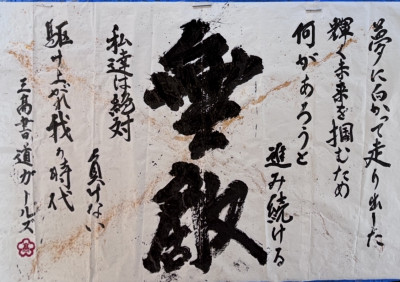 夢に向かって走り出した
輝く未来を掴むため
何があろうと
進み続ける
無敵
私達は絶対
負けない
駆け上がれ我が時代
三高書道ガールズ